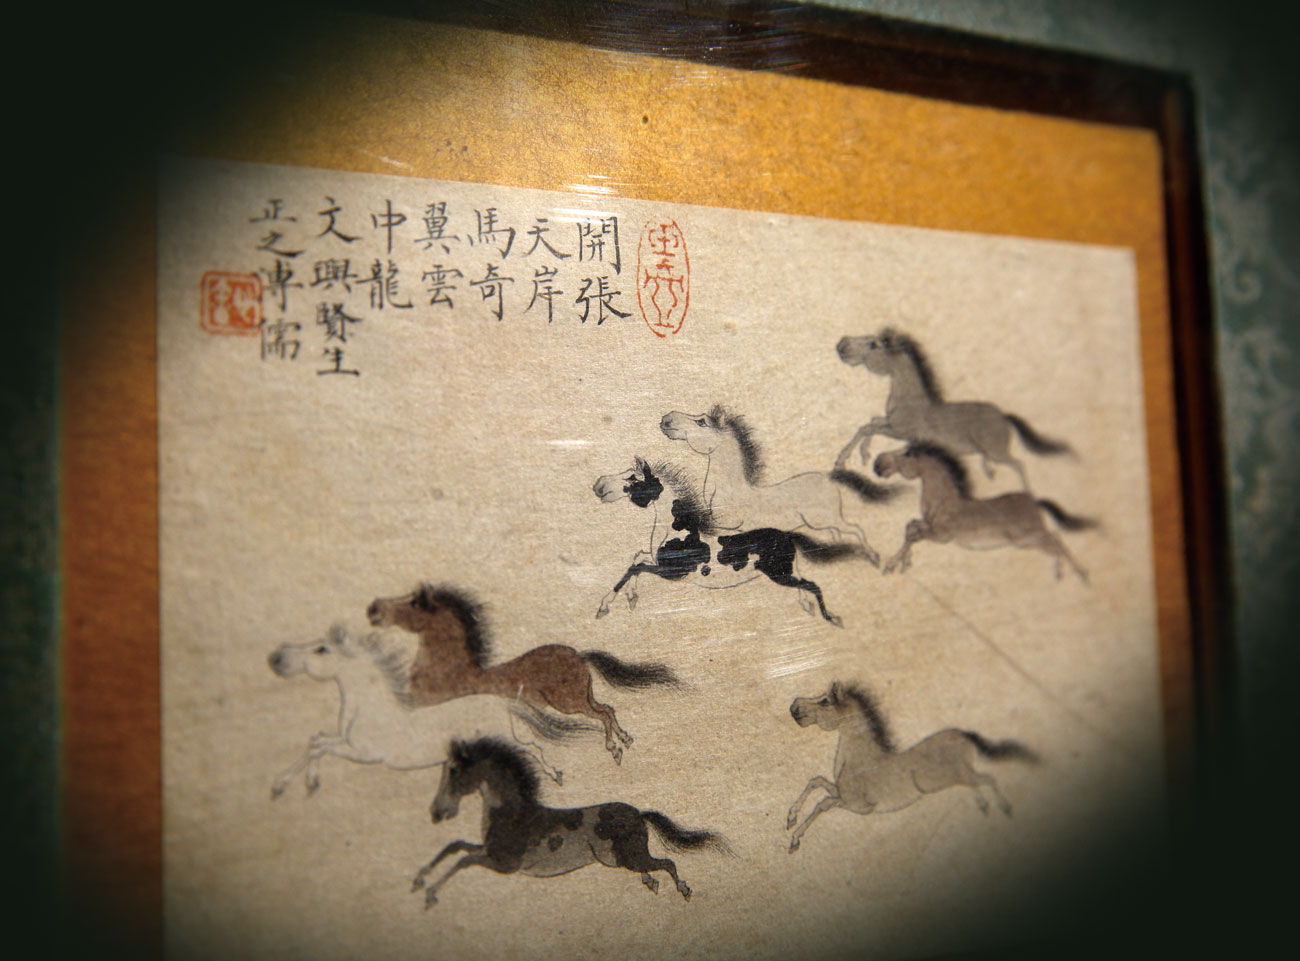 開張
天岸
馬奇
翼雲
中龍
文興賢生
正之溥儒